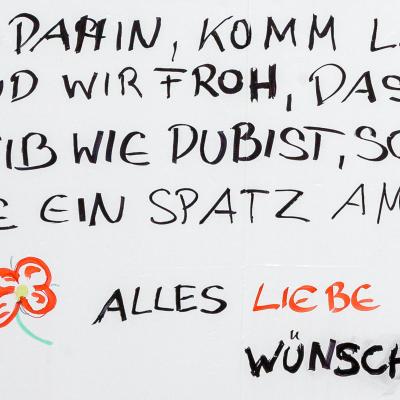 DAHIN, KOMM L
ND WIR FROH, DAS
IB WIE DU BIST, SO
E EIN SPATZ AM
ALLES LIEBE
WÜNSCH